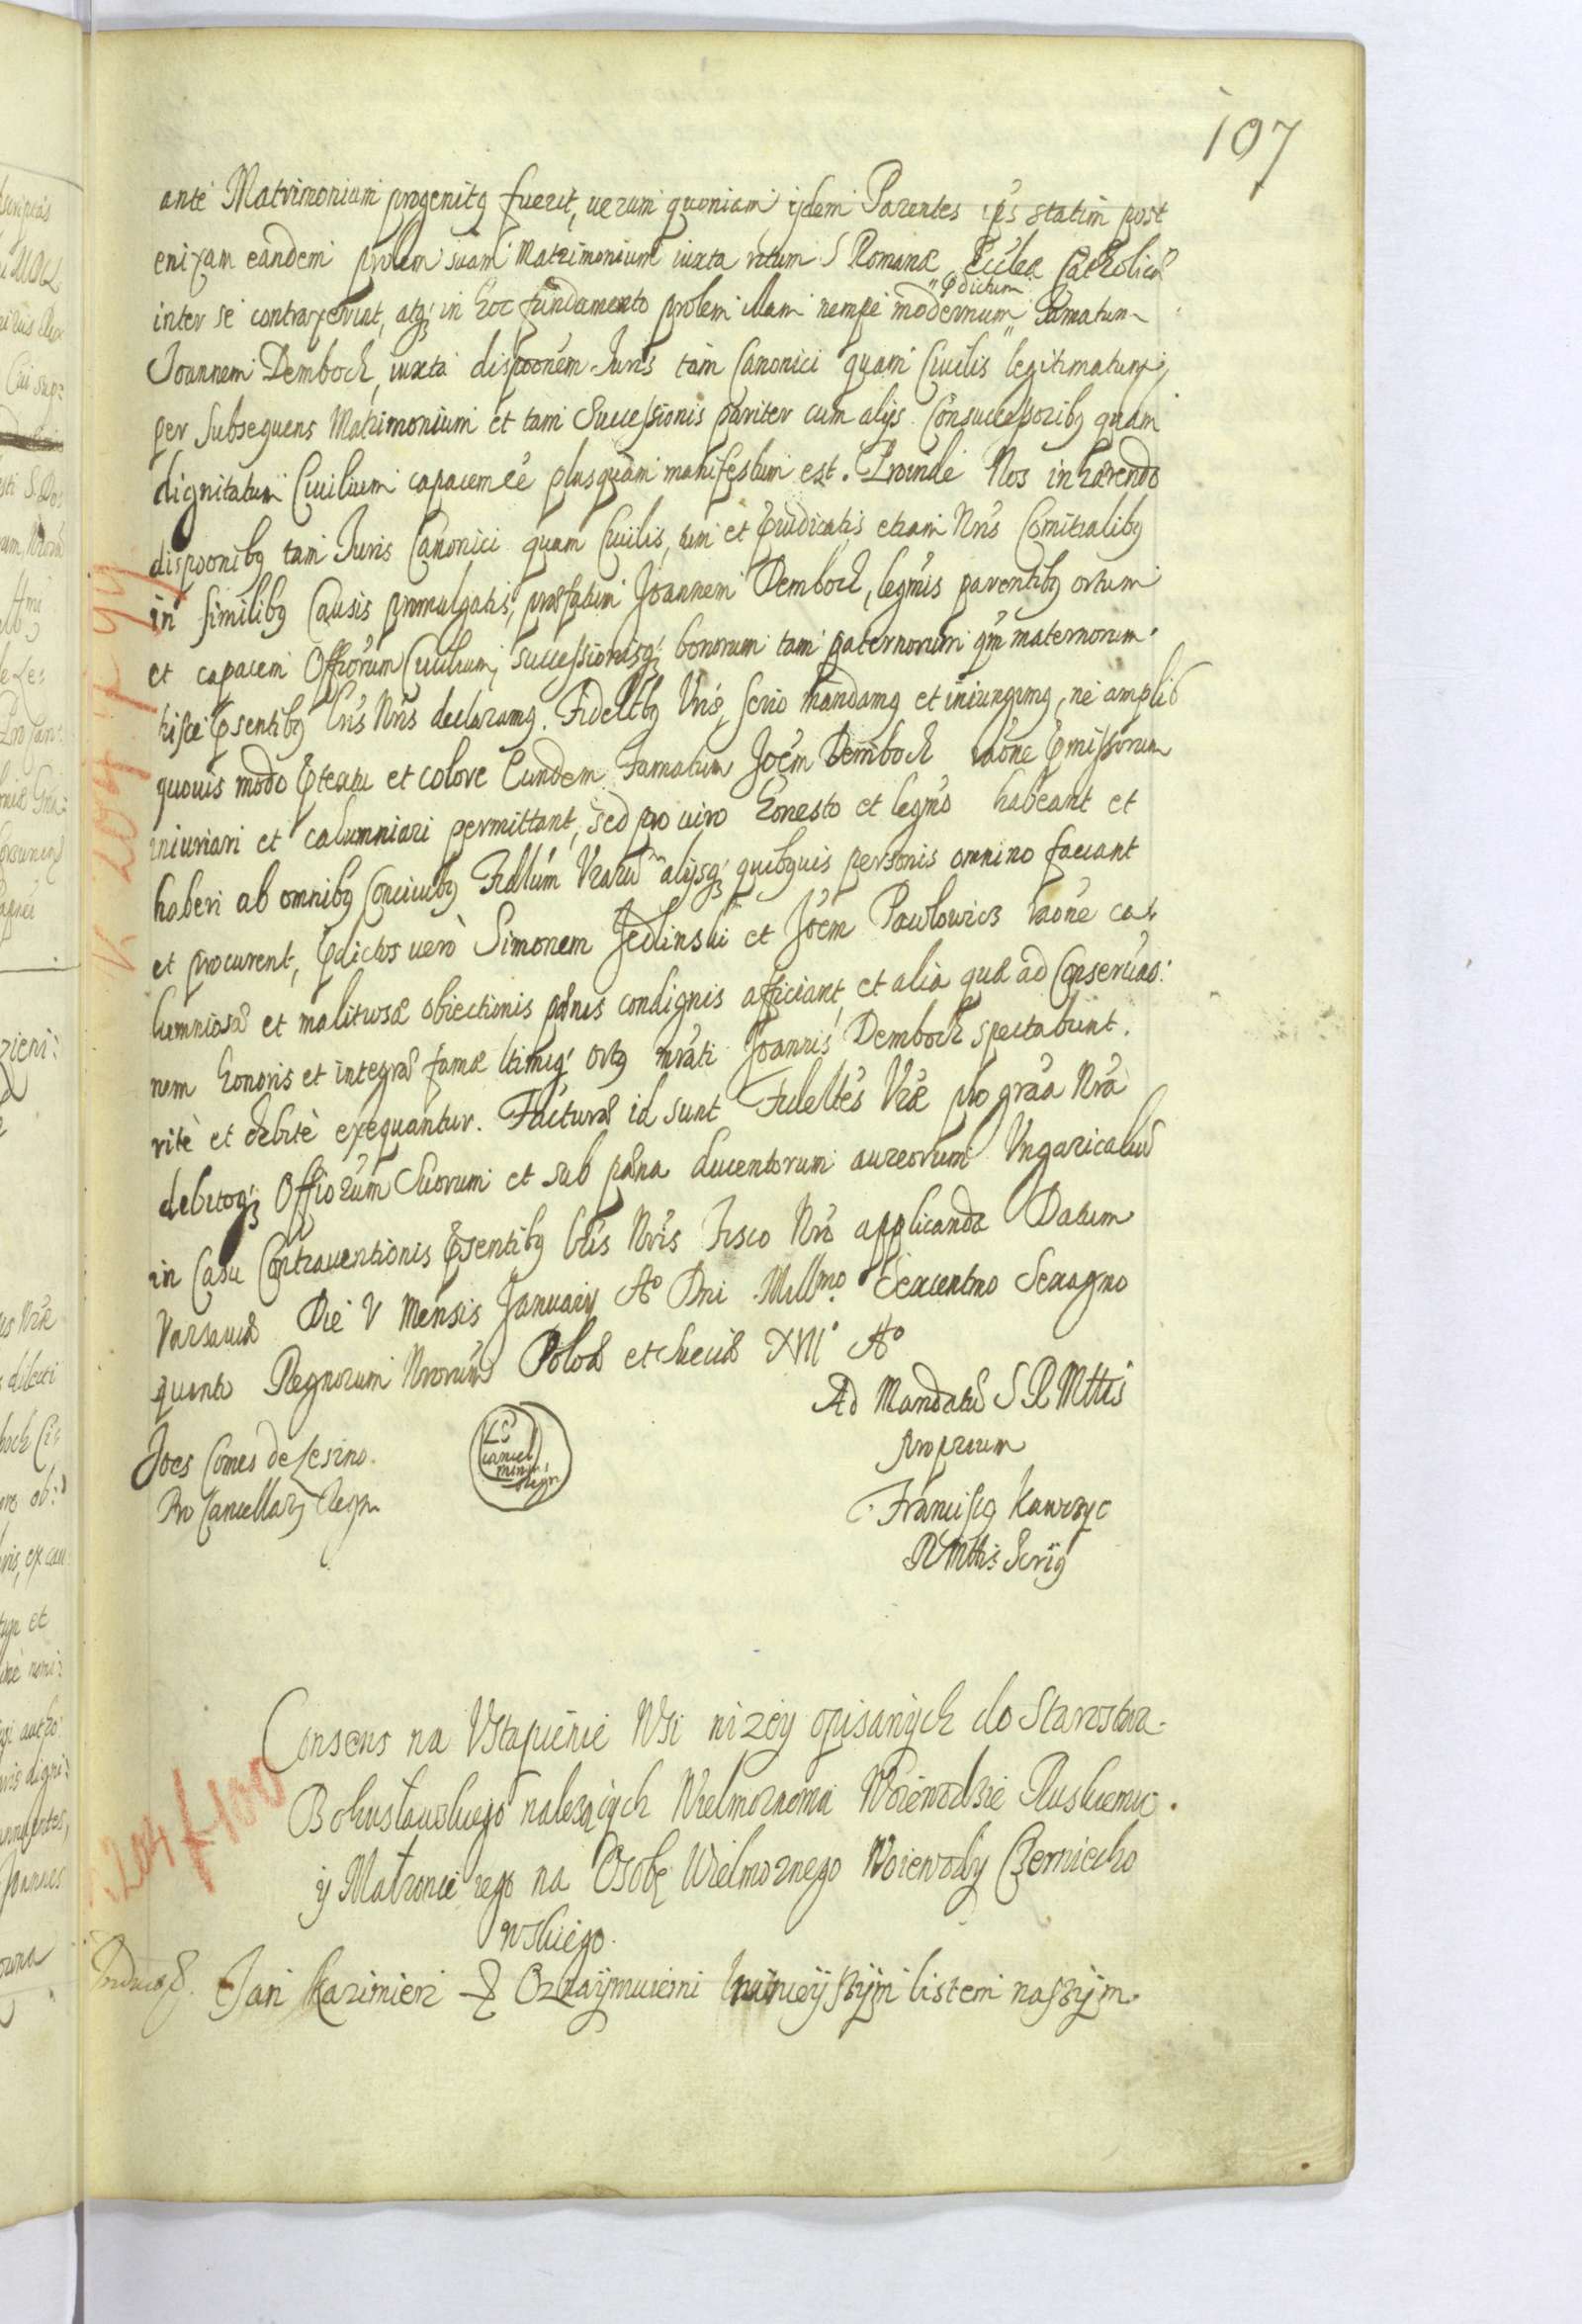 107
ante Matrimonium progenitq fuerit, uerum quoniam ijdem Parentes ips statim post
enixam eandem prolem suam Matrimonium iuxta ritum S Romanæ Eccłæ Catholicæ
inter se contraxerint, atq in hoc fundamento prolem illam nempe modernum "pdictum" Famatum
Joannem Demboch, iuxta dispoonem Juris tam Canonici quam Ciuilis legitimatum,
per subsequens Matrimonium et tam Successionis pariter cum alijs Consuccessoribq quam
dignitatum Ciuilium capacem ee plusquam manifestum est. Proinde Nos inhærendo
dispoonibq tam Juris Canonici quam Ciuilis, tum et pudicatis etiam Nris Comitialibq
in similibq Causis promulgatis, præfatum Joannem Demboch, legmis parentibq ortum
et capacem Offiorum Ciuilium, successionisq bonorum tam paternorum qm maternorum
hisce psentibq Lris Nris declaramq. Fideltbq Vris serio mandamq et iniungimq, ne ampliq
quouis modo ptextu et colore Eundem Famatum Joem Demboch raone pmissorum
iniuriari et calumniari permittant, sed pro uiro honesto et legmo habeant et
haberi ab omnibq Conciuibq Fidlum Vrarum alijsq quibquis personis omnino faciant
et procurent, pdictos uero Simonem Jedlinski et Joem Pawlowicz raone ca-
lumniosæ et malitiosæ obiectionis pænis condignis afficiant, et alia quæ ad Conseruao:
nem honoris et integræ famæ ltimiq ortq nrati Joannis Demboch spectabunt.
rite et debite exequantur. Facturæ id sunt Fideltes Vræ pro graa Nra
debitoq Offiorum Suorum et sub pæna ducentorum aureorum Vngaricaliu
in Casu Contrauentionis psentibq lris Nris Fisco Nro applicanda Datum
Varsauiæ Die V Mensis Januarij Ao Dni Millmo Sexcentmo Sexagmo
quinto Regnorum Nrorum Poloæ et Sueciæ XVIIo Ao
Ad Mandatu S R Mttis
proprium
Joes Comes de Leszno.
Pro Cancellarq Regn
LS
cancel
minor
Regni
Franciscq Kawrzyc
R Mttis Secriq
K 204 f 99
Consens na Vstąpienie Wsi niżey opisanych do Starostwa
Bohusławskiego należących Wielmożnemu Woiewodzie Ruskiemu.
y Małżonce iego na Osobę Wielmożnego Woiewody Czerniecho
wskiego.
204 f 100
Jan Kazimierz Oznaymuiemi ninieyszym listem naszym